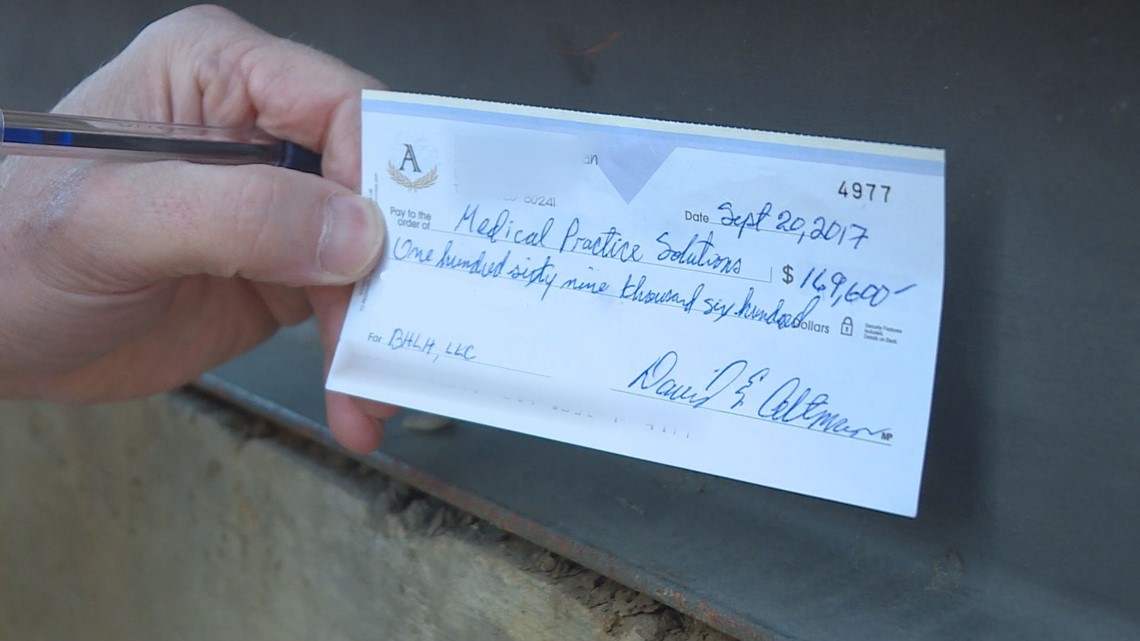 A
an
4977
60241
Date Sept 20, 2017
Pay to the
order of Medical Practice Solutions $ 169,600
One hundred sixty nine thousand six hundred Dollars
Security Features
Included.
Details on Back.
For BHLH, LLC
David E Coltman
MP